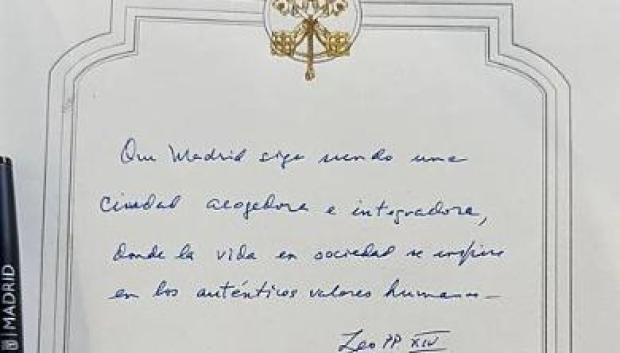 Que Madrid siga siendo una
ciudad acogedora e integradora,
donde la vida en sociedad se inspire
en los auténticos valores humanos—
Leo PP. XIV
MADRID